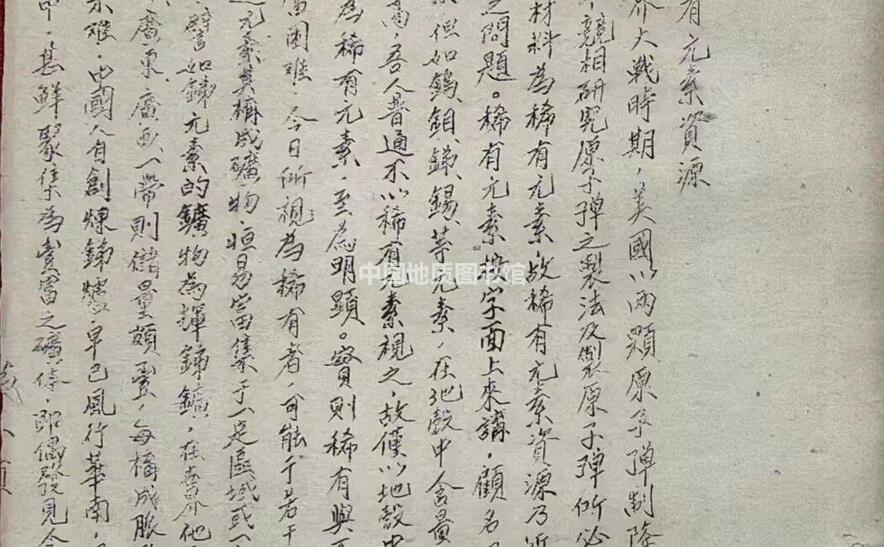 有元素資源
界大戰時期,美國以兩顆原子彈制降
競相研究原子彈之製法及製原子彈所必
材料為稀有元素,故稀有元素資源乃近
之問題。稀有元素按字面上來講,顧名
但如鎢、鉬、銻、錫、等元素,在地殼中含量
吾人普通不以稀有元素視之,故僅以地殼中
為稀有元素,至為明顯。實則稀有與
困難,今日所視為稀有者,可能于若干
元素其構成礦物,恒易富集于一定區域或一
譬如銻元素的鑛物為輝銻鑛,在世界他
廣東、廣西一帶則儲量頗豐,每構成脈
難,中國人自創煉銻爐,早已風行華南,
中,甚鮮聚集為豐富之礦体,即偶發見含
中国地质图书馆